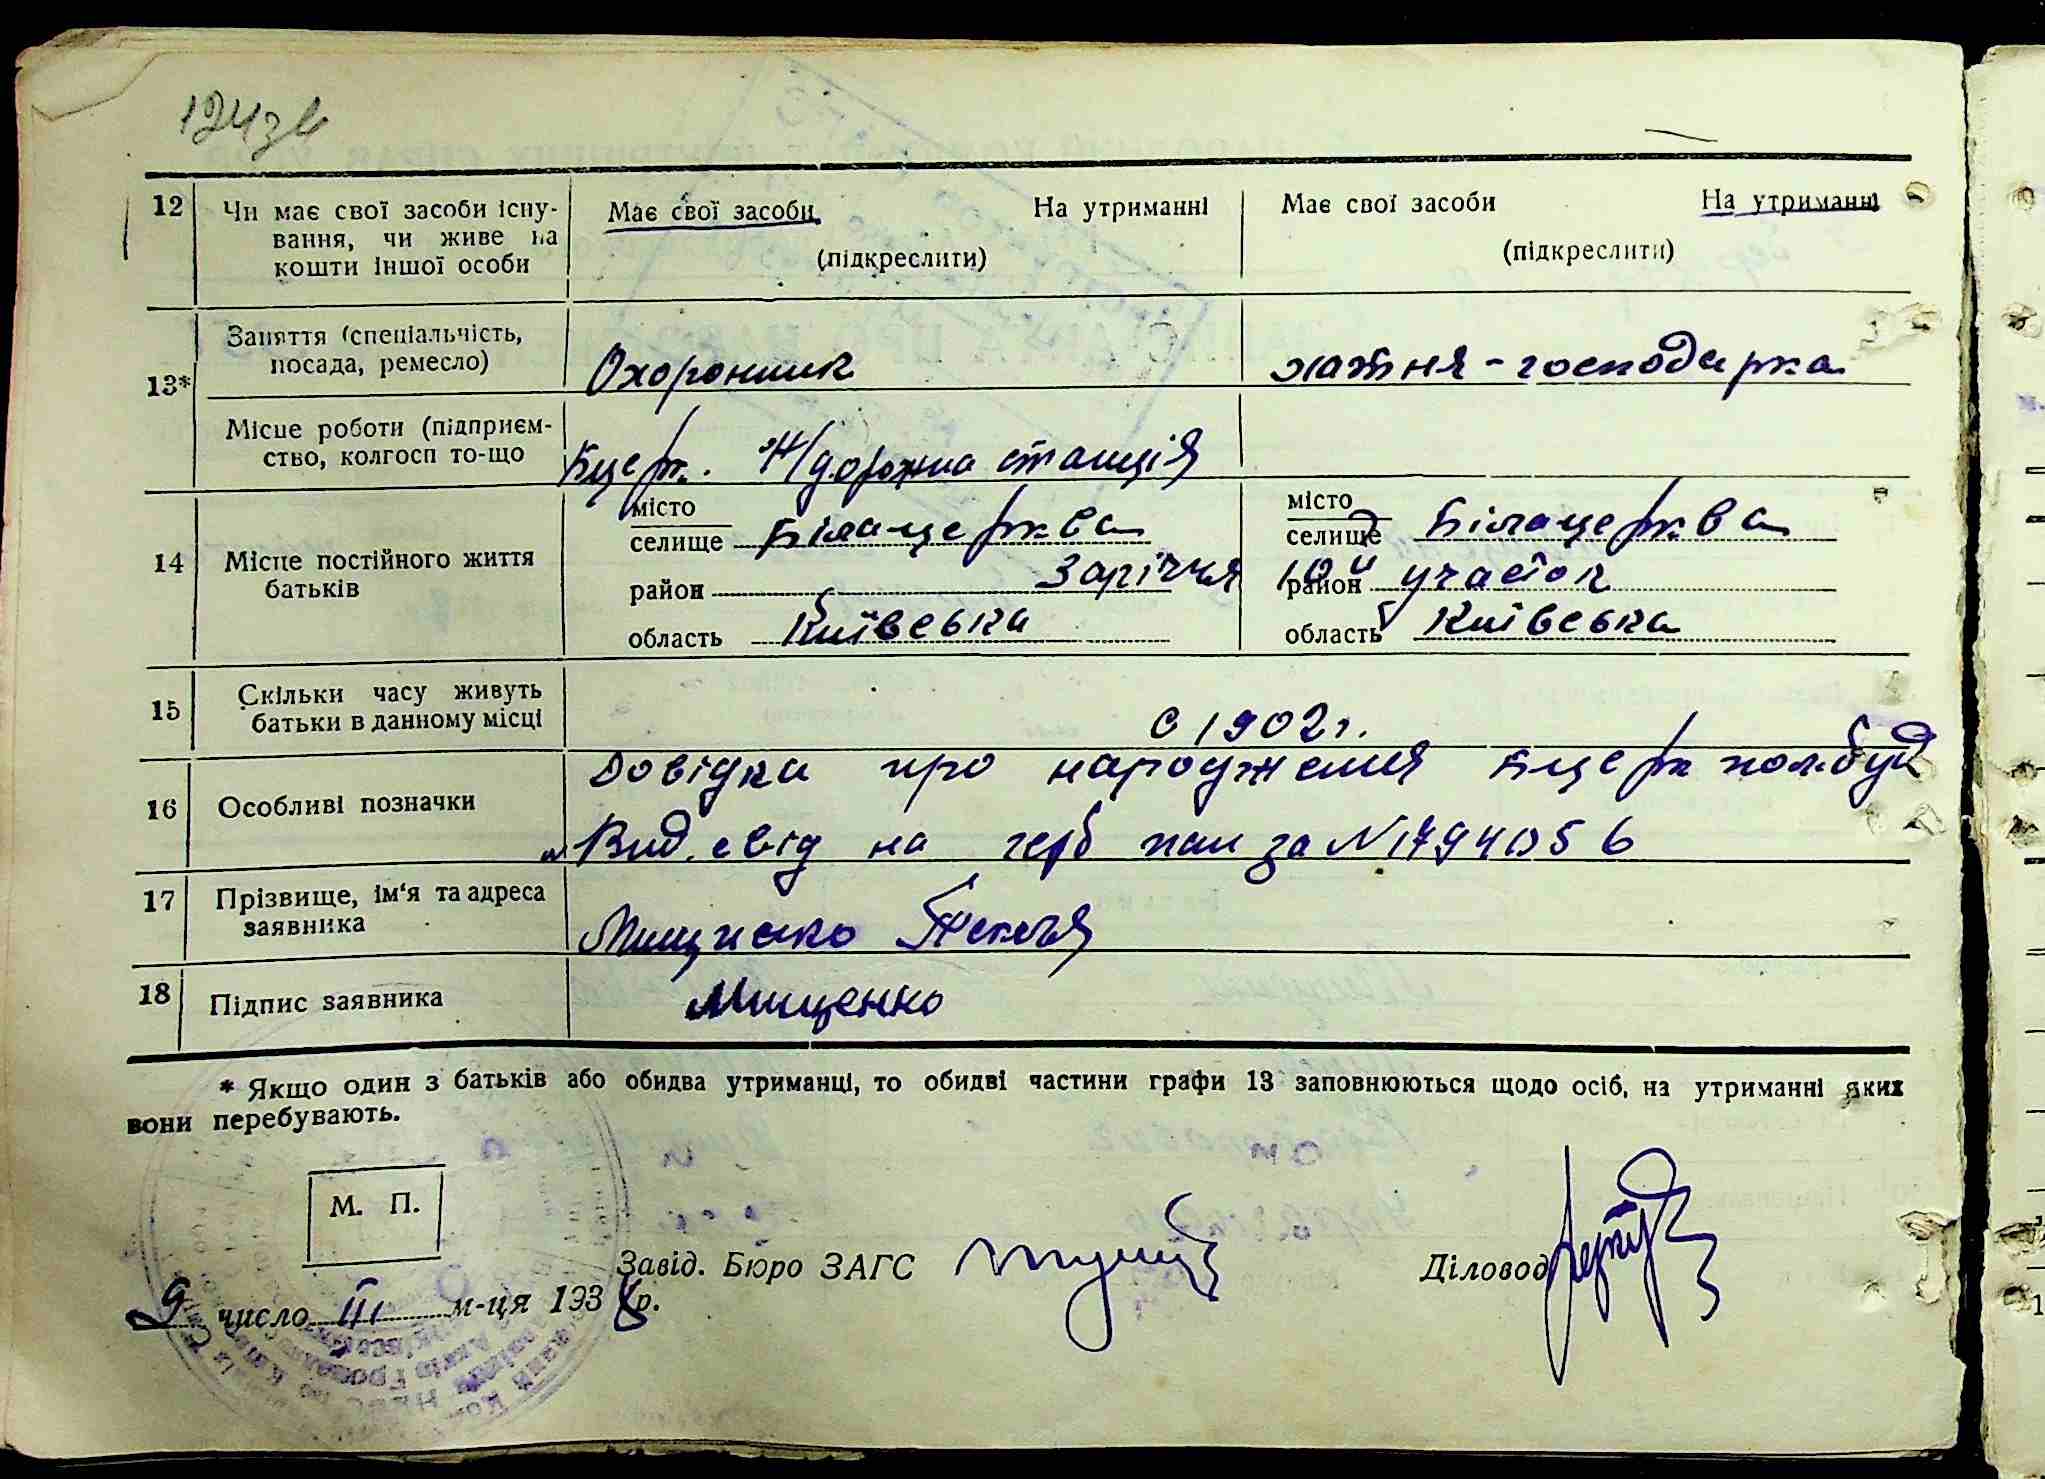 124зв
12 Чи має свої засоби існу-
вання, чи живе на
кошти іншої особи
Має свої засоби На утриманні
(підкреслити)
Має свої засоби На утриманні
(підкреслити)
13* Заняття (спеціальність,
посада, ремесло)
Охоронник
хатня-господарка
Місце роботи (підприєм-
ство, колгосп то-що
Бцерк. Ж/дорожна станція
14 Місце постійного життя
батьків
місто
селище Білацерква
район Заріччя
область Київська
місто
селище Білацерква
район 10й участок
область Київська
15 Скільки часу живуть
батьки в данному місці
с 1902 г.
16 Особливі позначки
Довідка про народження Бцерк пол.буд
Вид. свід на герб пап за N 1794056
17 Прізвище, ім‘я та адреса
заявника
Мищенко
18 Підпис заявника
Мищенко
* Якщо один з батьків або обидва утриманці, то обидві частини графи 13 заповнюються щодо осіб, на утриманні яких
вони перебувають.
М. П.
Завід. Бюро ЗАГС
Діловод
9 число III м-ця 1938 р.